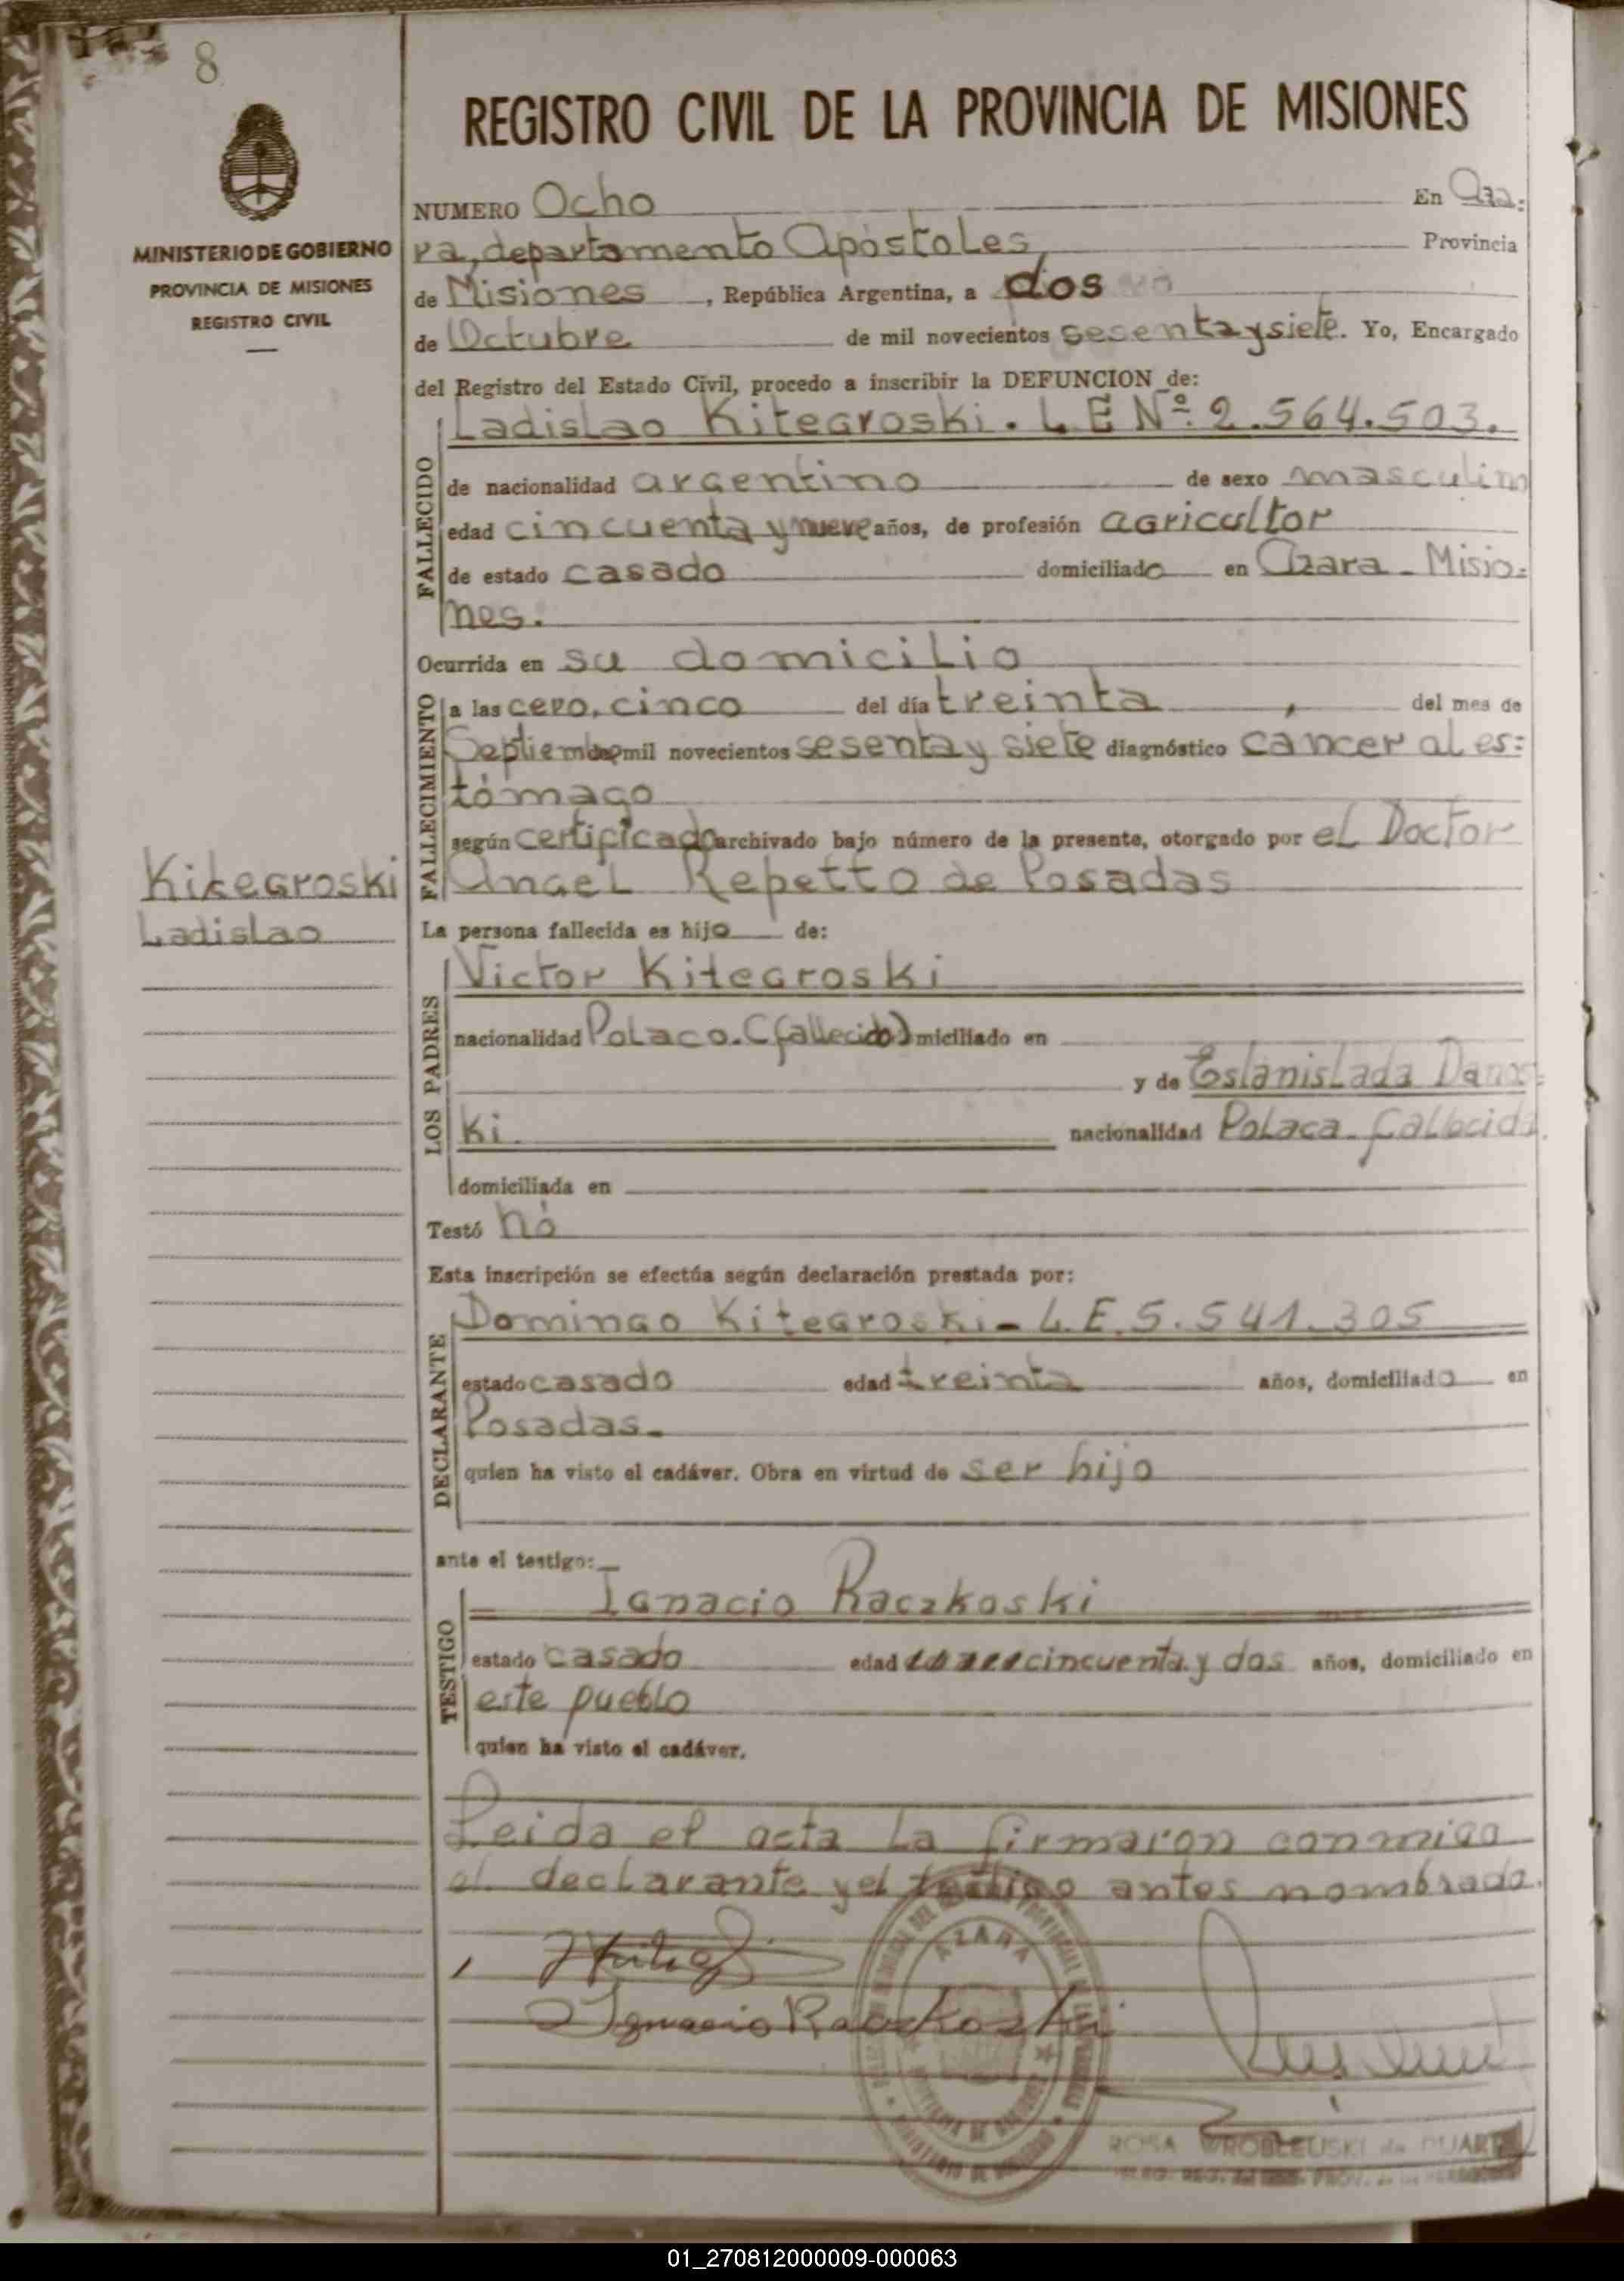 8
MINISTERIO DE GOBIERNO
PROVINCIA DE MISIONES
REGISTRO CIVIL
REGISTRO CIVIL DE LA PROVINCIA DE MISIONES
NUMERO Ocho En Aza-
ra, departamento Apóstoles Provincia
de Misiones, República Argentina, a dos
de Octubre de mil novecientos sesenta y siete. Yo, Encargado
del Registro del Estado Civil, procedo a inscribir la DEFUNCION de:
FALLECIDO
Ladislao Kitegroski. L E Nº 2.564.503.
de nacionalidad argentino de sexo masculino
edad cincuenta y nueve años, de profesión agricultor
de estado casado domiciliado en Azara - Misio-
nes.
Ocurrida en su domicilio
FALLECIMIENTO
a las cero, cinco del día treinta, del mes de
Septiembre mil novecientos sesenta y siete diagnóstico cancer al es-
tómago
según certificado archivado bajo número de la presente, otorgado por el Doctor
Angel Repetto de Posadas
Kitegroski
Ladislao
La persona fallecida es hijo de:
LOS PADRES
Victor Kitegroski
nacionalidad Polaco. (fallecido) miciliado en
y de Eslanislada Danos-
ki nacionalidad Polaca fallecida.
domiciliada en
Testó nó
Esta inscripción se efectúa según declaración prestada por:
DECLARANTE
Domingo Kitegroski - L.E. 5.541.305
estado casado edad treinta años, domiciliado en
Posadas.
quien ha visto el cadáver. Obra en virtud de ser hijo
ante el testigo:
TESTIGO
Ignacio Raczkoski
estado casado edad cincuenta y dos años, domiciliado en
este pueblo
quien ha visto el cadáver.
Leida el acta la firmaron conmigo
el declarante y el testigo antes nombrado.
AZARA
Ignacio Raczkoski
ROSA WROBLEUSKI de DUARTE
01_270812000009-000063